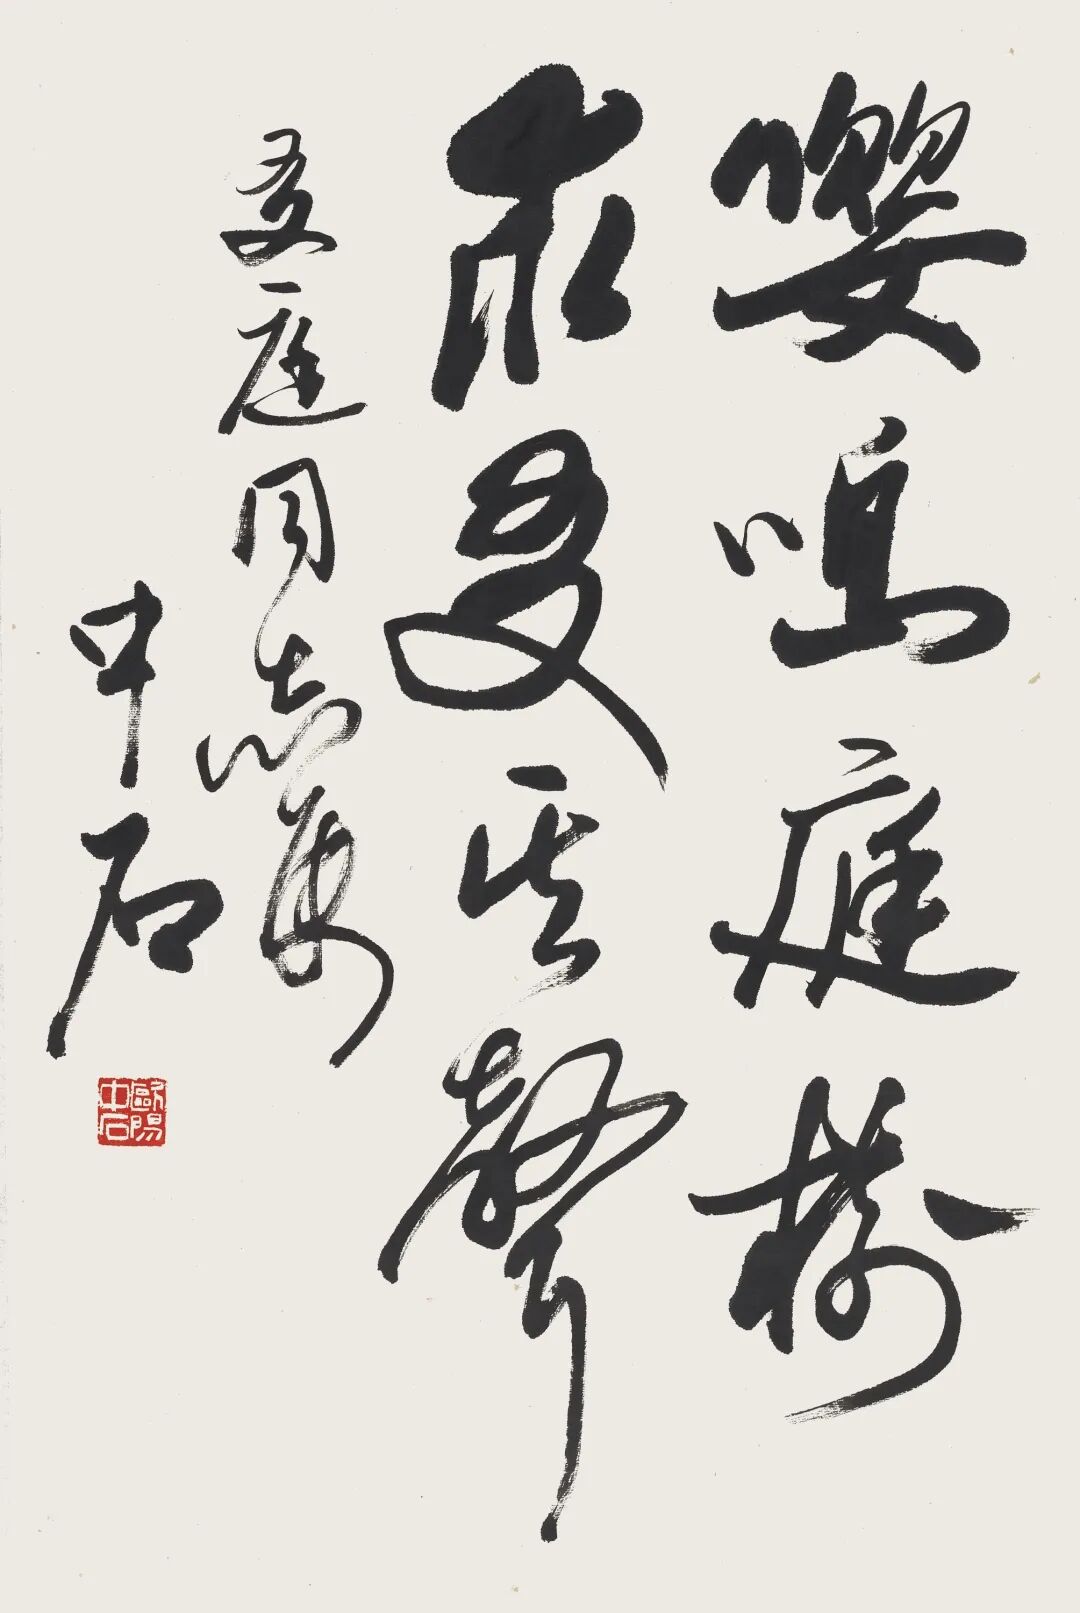 嚶鳴庭樹
求友其聲
友庭同志
中石
歐陽
中石